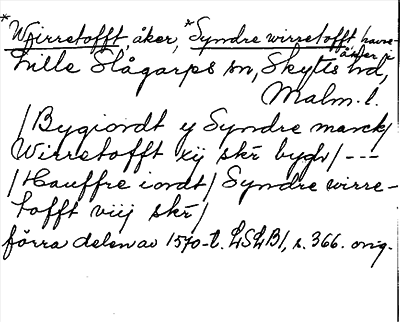 *Wirretofft, åker, *Syndre wirretofft, havre-
åker i
Lille Slågarps sn, Skytts hd,
Malm. l.
/Bygiordt y Syndre marck/
Wirretofft xij skr bygh/ ---
/Hauffre iordt/ Syndre wirre-
tofft viij skr/
förra delen av 1570-t. LSLB1, s. 366. orig.